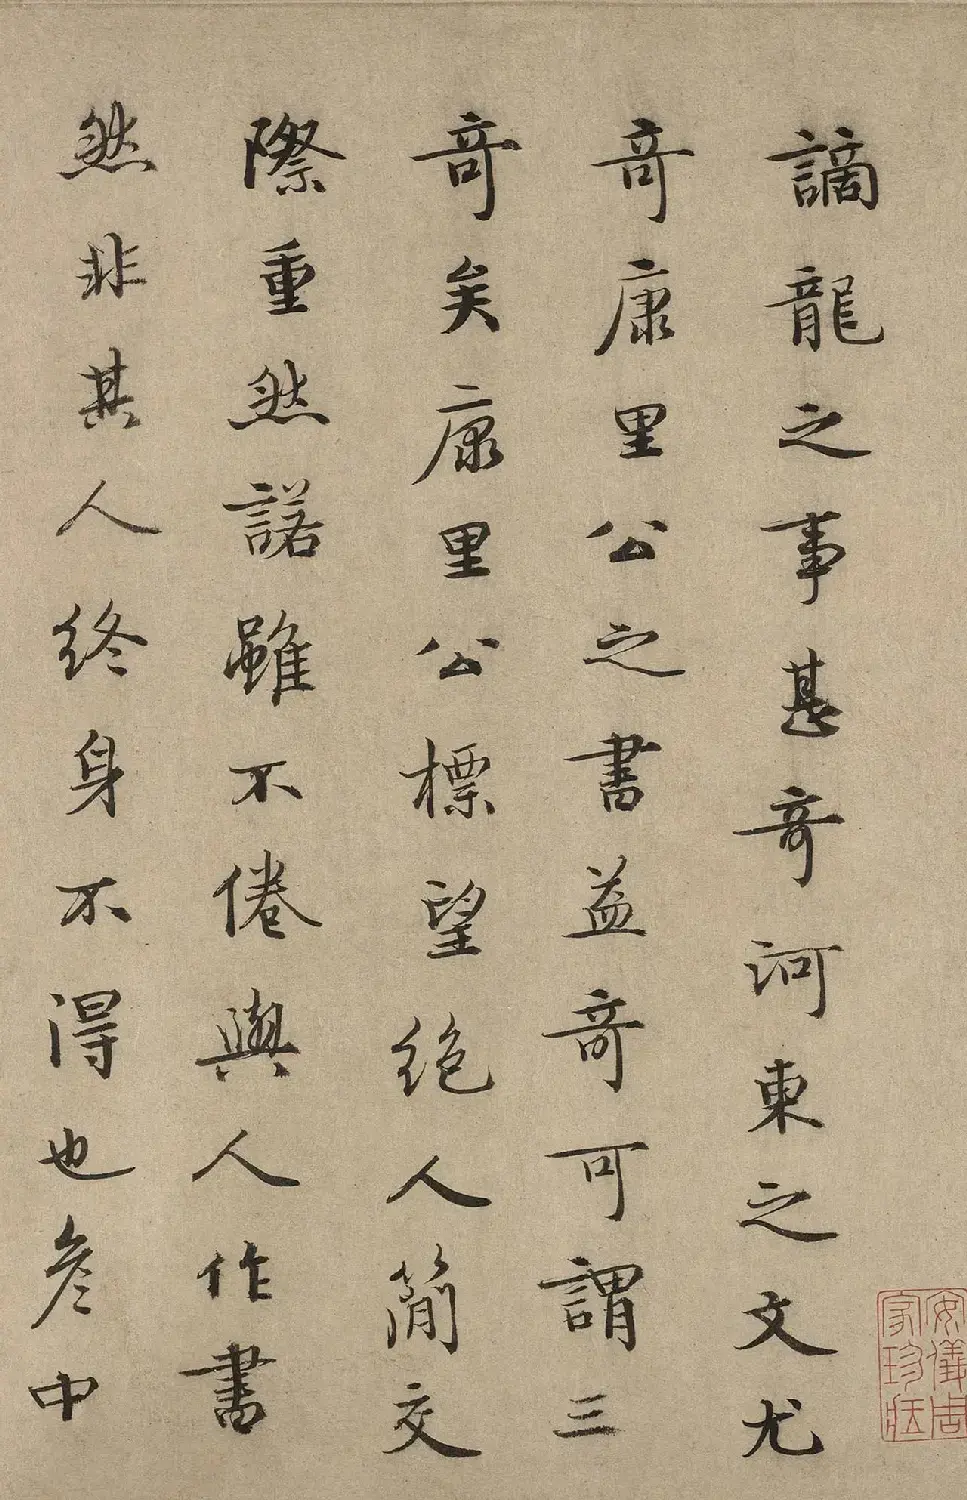 謫龍之事甚奇河東之文尤
奇康里公之書益奇可謂三
奇矣康里公標望絕人簡交
際重然諾雖不倦與人作書
然非其人終身不得也彦中
安儀周
家珍藏